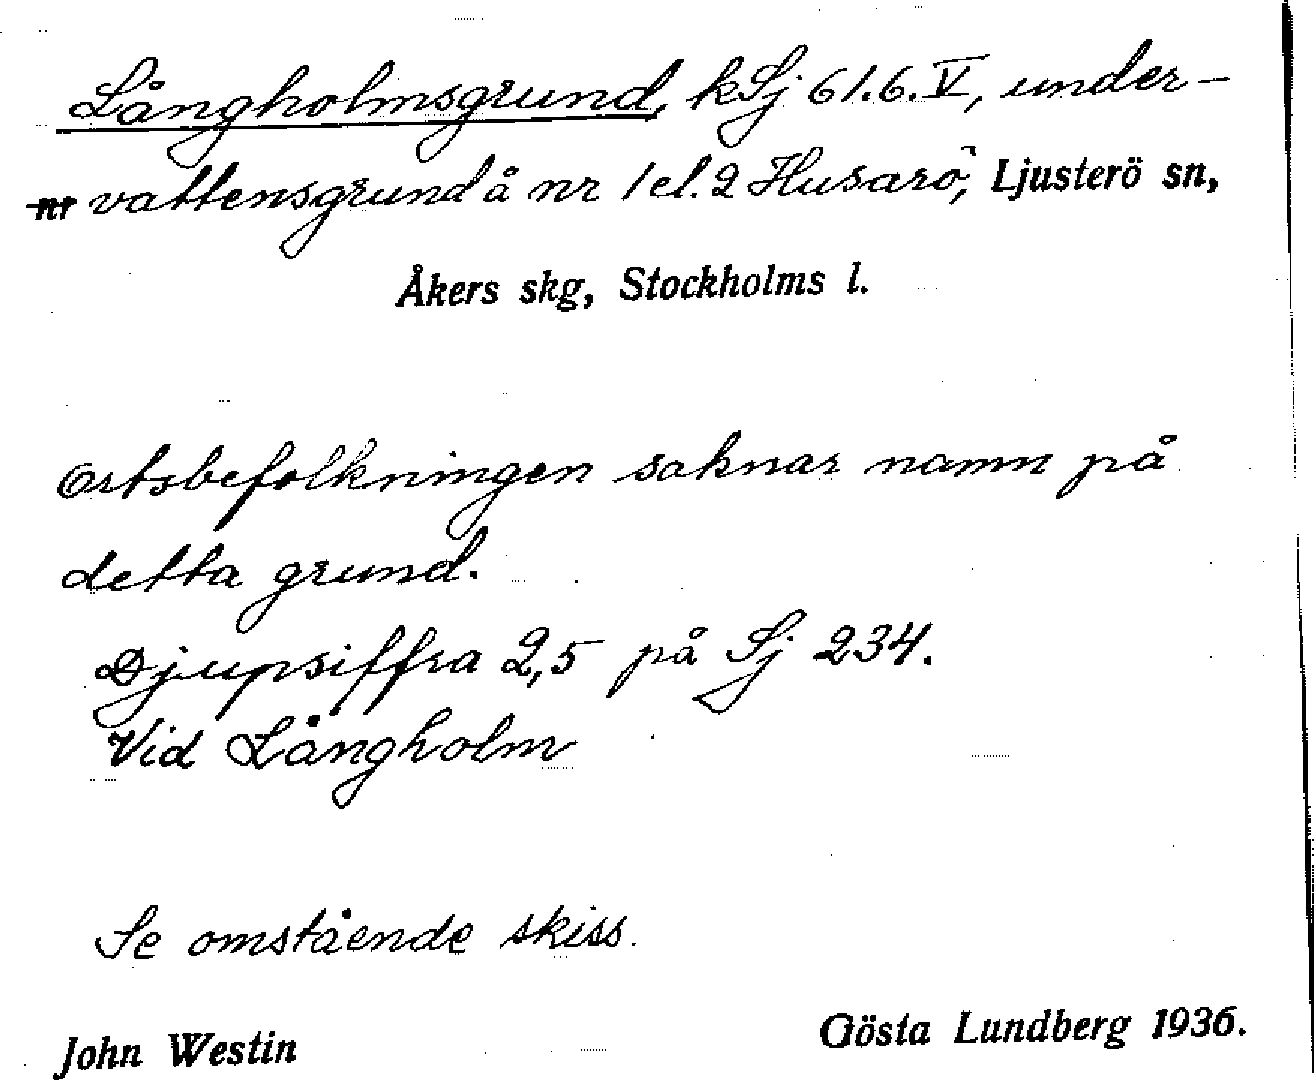 Långholmsgrund, kSj 61.6.V, under-
nr vattensgrund å nr 1 el. 2 Husarö, Ljusterö sn,
Åkers skg, Stockholms l.
Ortsbefolkningen saknar namn på
detta grund.
Djupsiffra 2,5 på Sj 234.
Vid Långholm
Se omstående skiss.
John Westin Gösta Lundberg 1936.